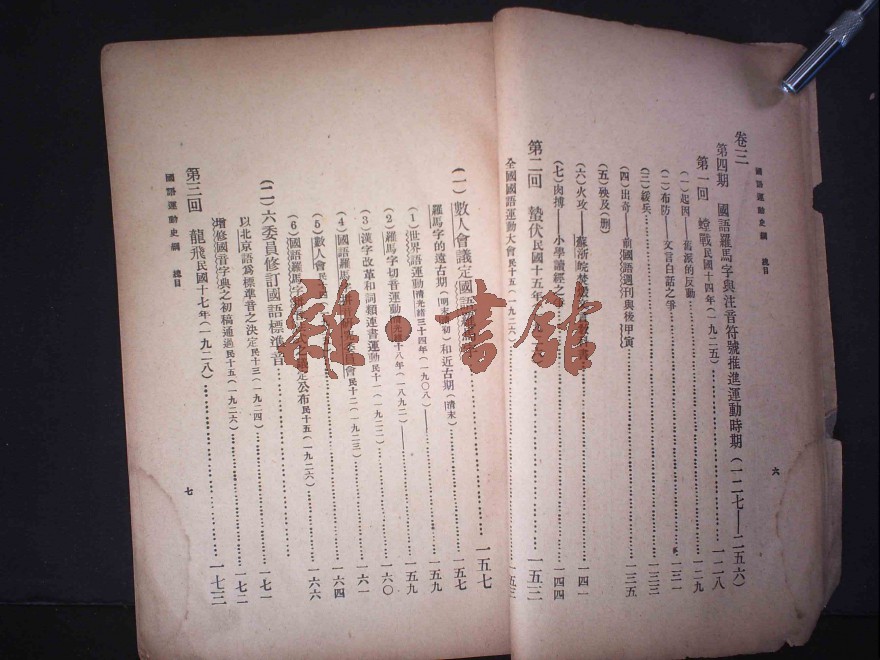 國語運動史綱 總目
六
卷三
第四期 國語羅馬字與注音符號推進運動時期(一二七—二五六)
第一回 螳戰民國十四年(一九二五)一二八
(一)起因——舊派的反動一二九
(二)布防——文言白話之爭一三一
(三)緩兵一三三
(四)出奇——前國語週刊與後甲寅一三五
(五)殃及
(六)火攻——蘇浙皖一四一
(七)肉搏——小學讀經之一四四
第二回 蟄伏民國十五年一五三
全國國語運動大會民十五(一九二六)一五三
一五七
(一)數人會議定國語羅馬字一五七
羅馬字的遠古期(明末)和近古期(清末)
(1)世界語運動清光緒三十四年(一九〇八)——一五九
(2)羅馬字切音運動清光緒十八年(一八九二)——一六〇
(3)漢字改革和詞類連書運動民十一(一九二二)一六一
(4)國語羅馬字會民十二(一九二三)一六四
(5)數人會一六六
(6)國語羅馬字公布民十五(一九二六)
(二)六委員修訂國語標準音一七一
以北京語爲標準音之決定民十三(一九二四)
增修國音字典之初稿通過民十五(一九二六)一七二
第三回 龍飛民國十七年(一九二八)一七三
國語運動史綱 總目
七
雜·書館